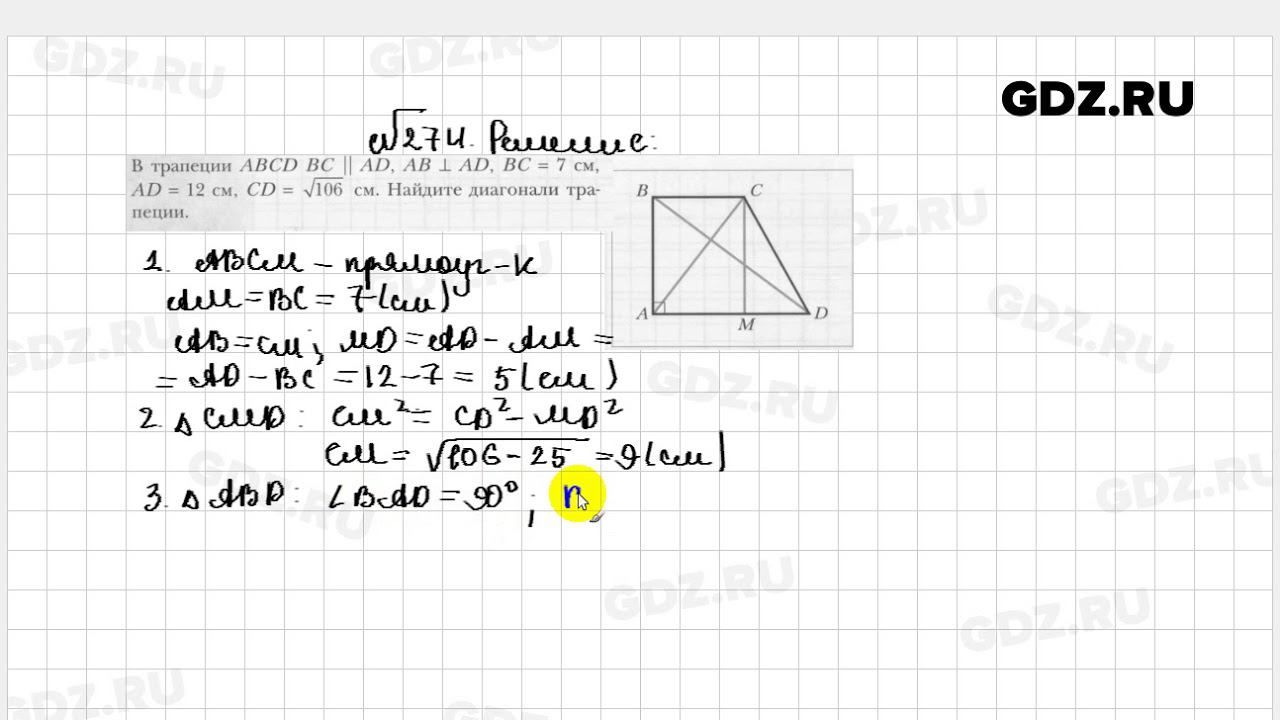 GDZ.RU
№274. Решение:
В трапеции ABCD BC || AD, AB ⊥ AD, BC = 7 см,
AD = 12 см, CD = √106 см. Найдите диагонали тра-
пеции.
B C
A M D
1. ABCM – прямоуг-к
AM = BC = 7 (см)
AB = CM; MD = AD – AM =
= AD – BC = 12 – 7 = 5 (см)
2. Δ CMD: CM² = CD² – MD²
CM = √106 – 25 = 9 (см)
3. Δ ABD: ∠BAD = 90°;